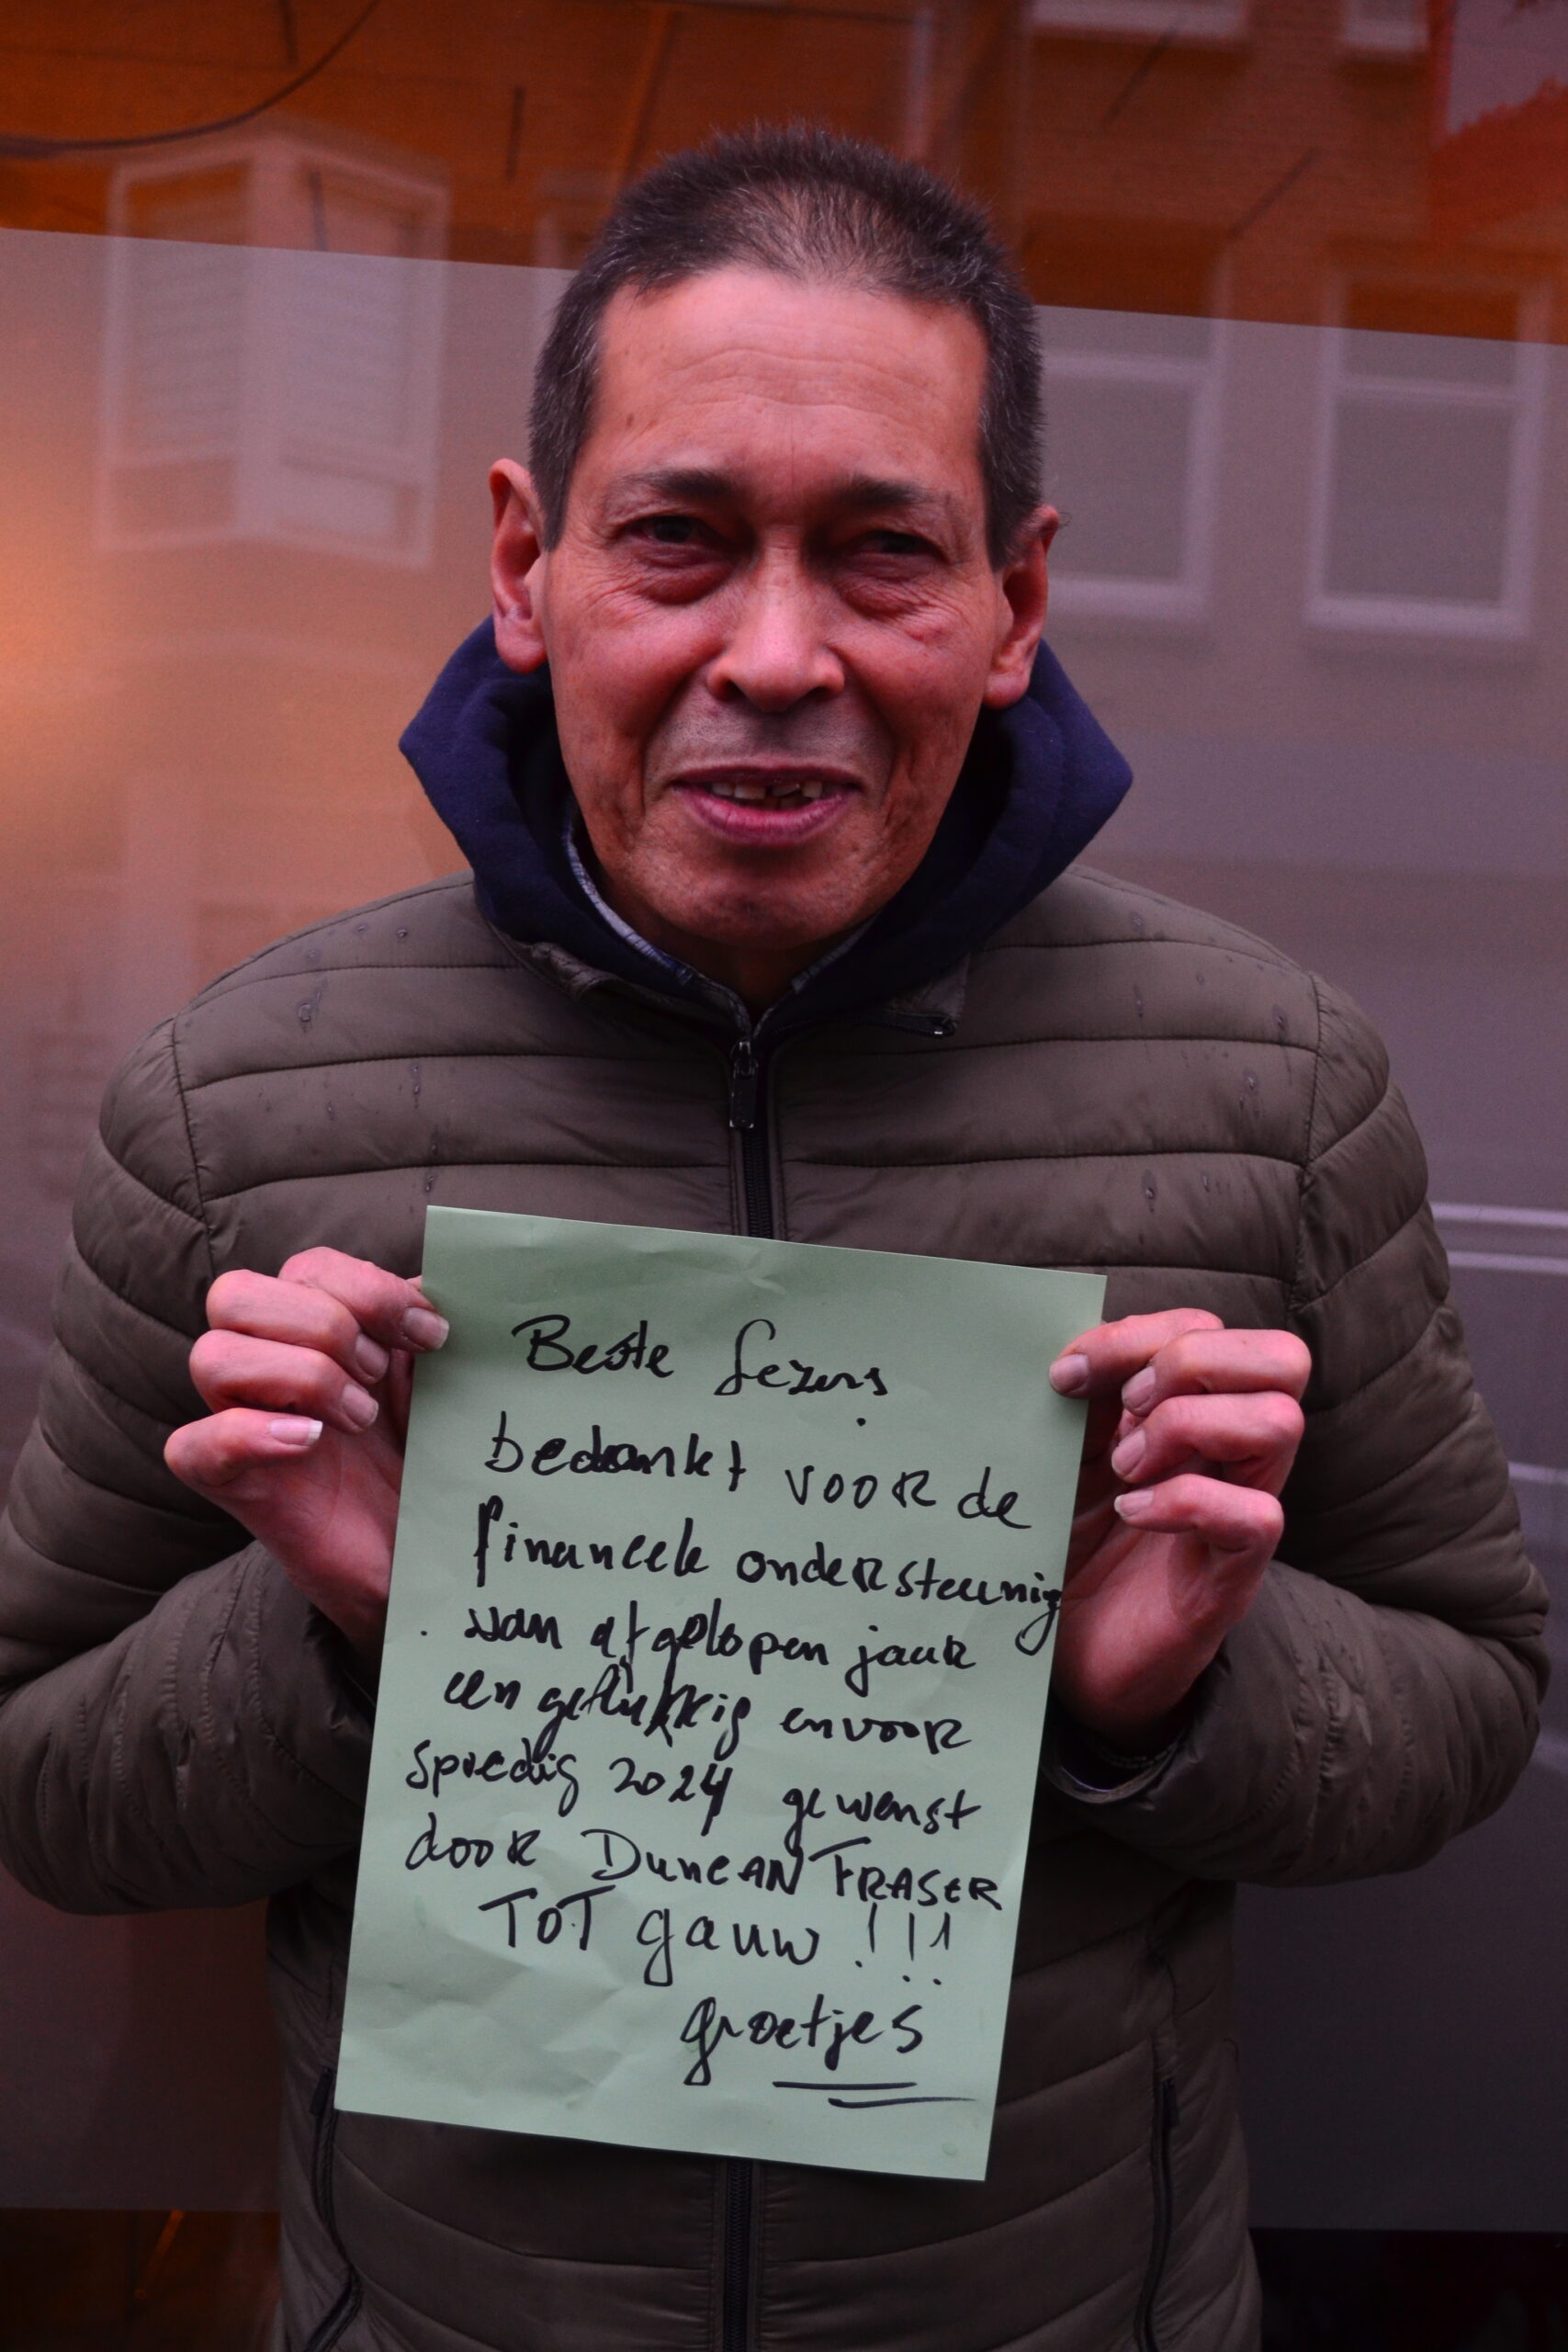 Beste Lezers
bedankt voor de
financeele ondersteunig
van afgelopen jaar
een gelukkig en voor
spoedig 2024 gewenst
door Duncan FRASER
TOT gauw !!!
groetjes